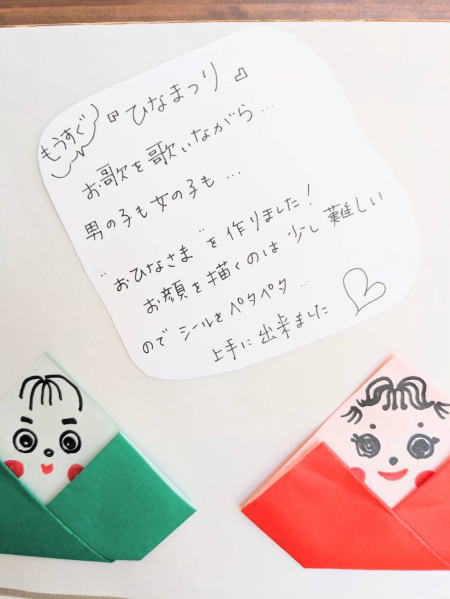 もうすぐ
『ひなまつり』
お歌を歌いながら…
男の子も女の子も…
"おひなさま"を作りました!
お顔を描くのは少し難しい
のでシールをペタペタ…
上手に出来ました